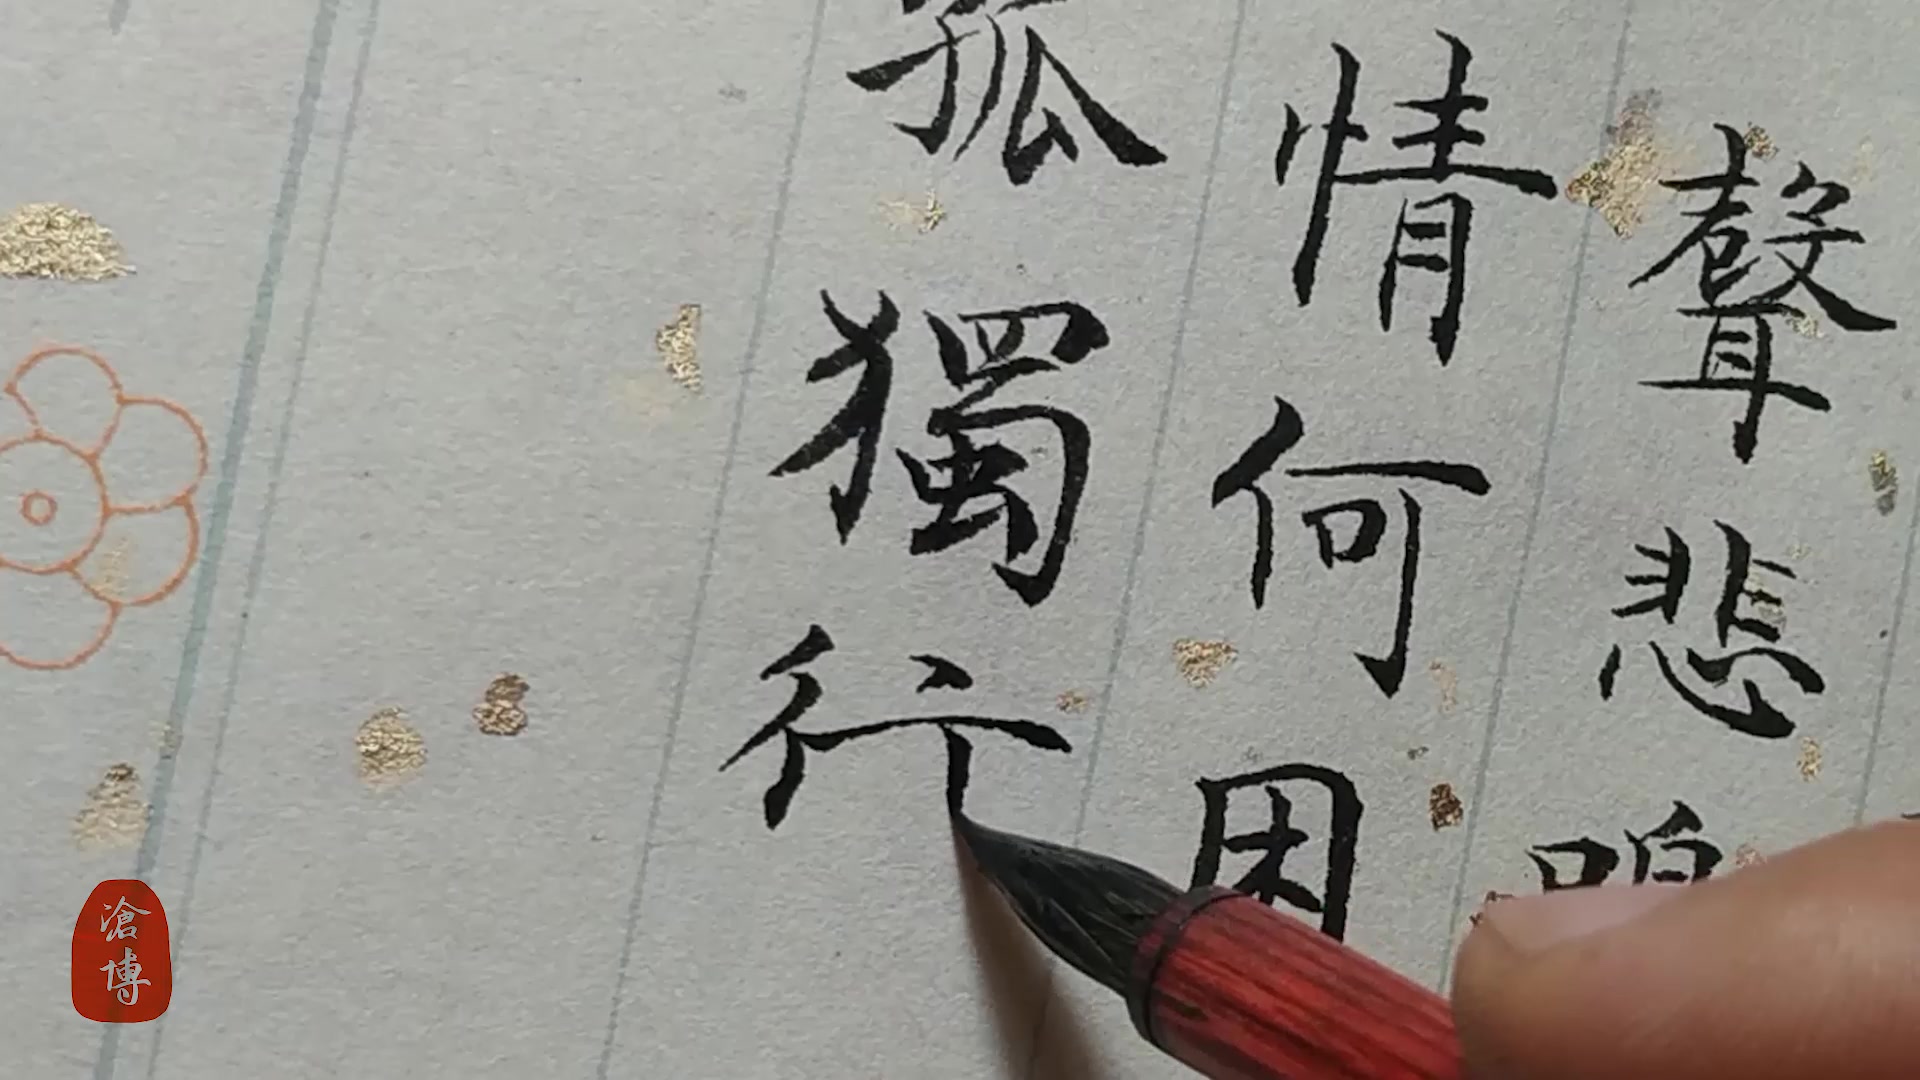 聲悲
情何困
孤獨行
滄博